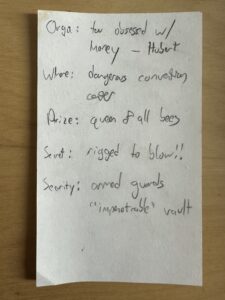 Orga: too obsessed w/
Money - Hubert
Where: dangerous convention
center
Prize: queen of all bees
Secret: rigged to blow!!
Security: armed guards
"impenetrable" vault